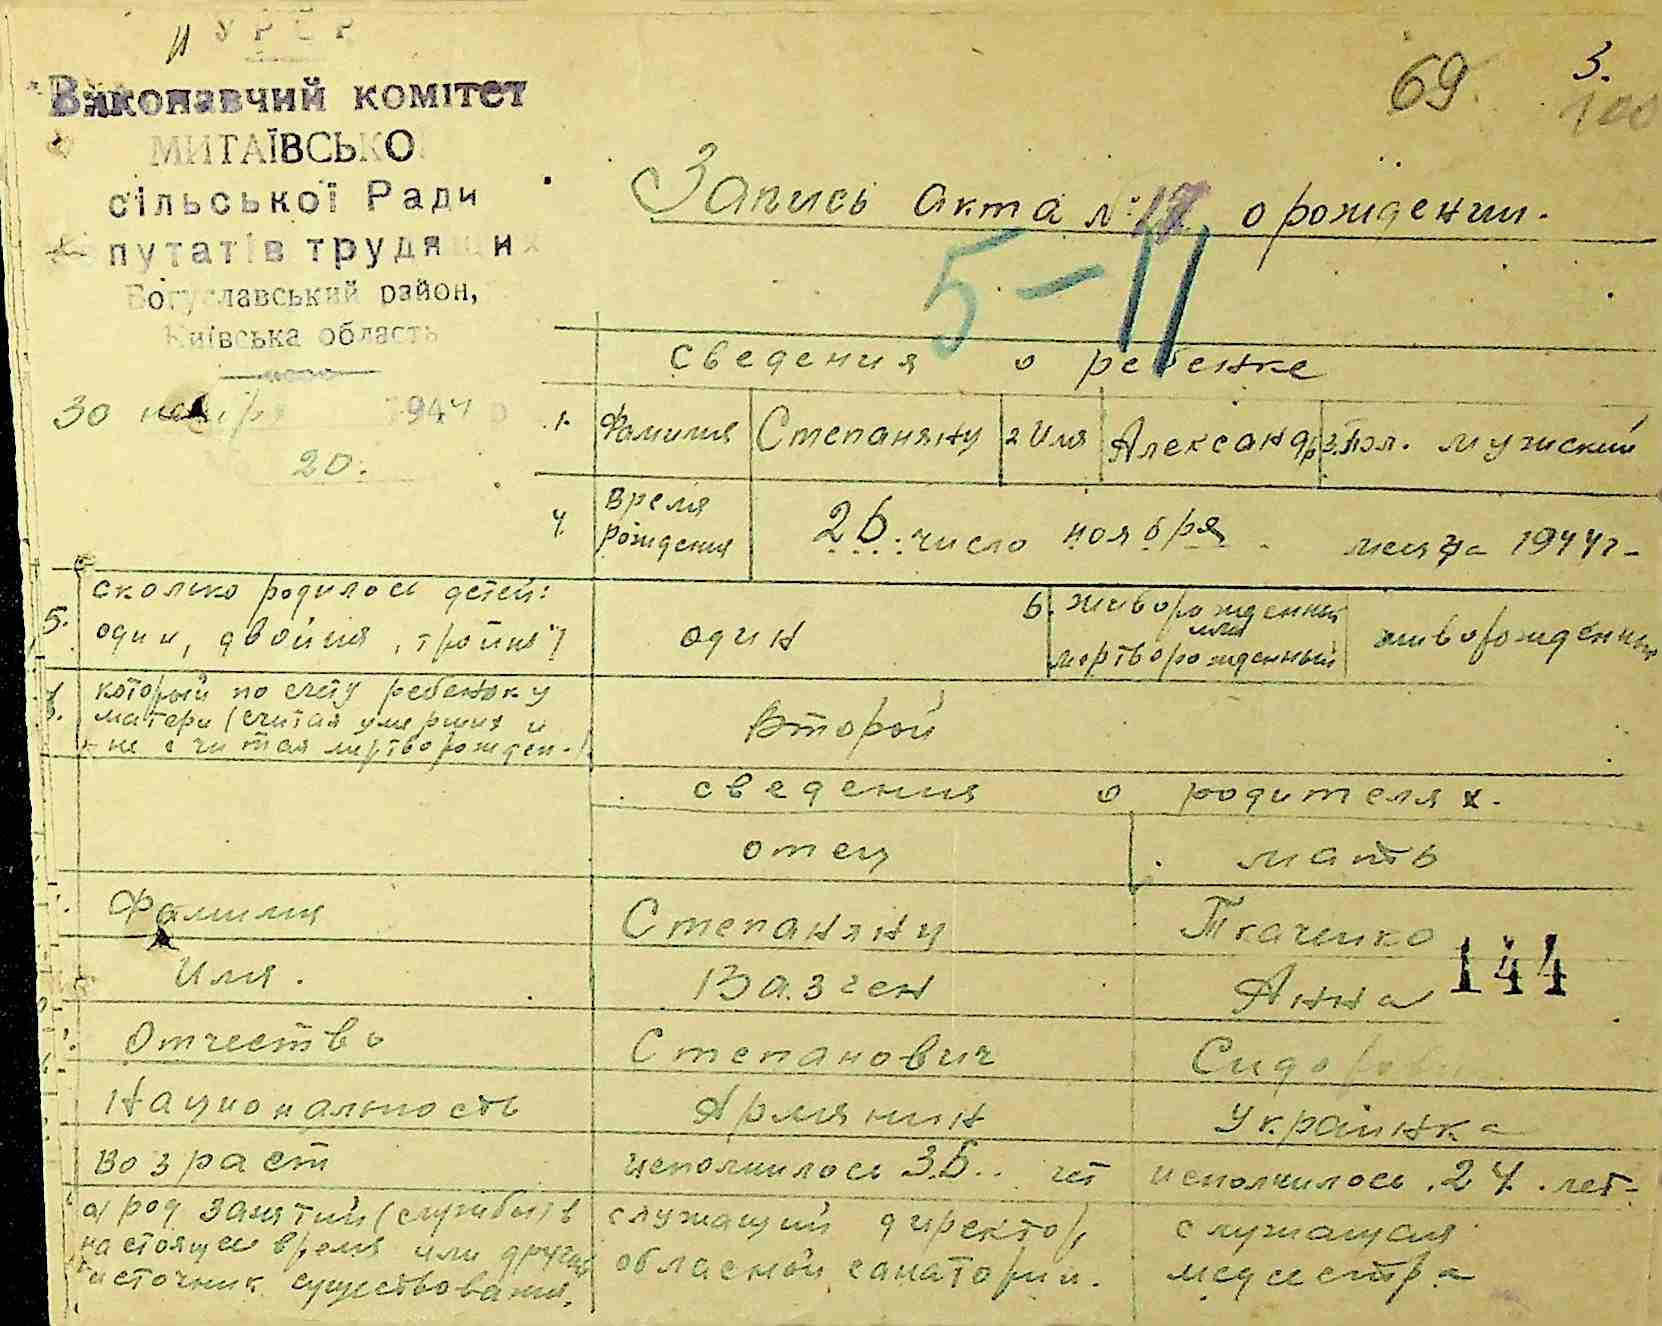 УРСР
Виконавчий комітет
МИТАЇВСЬКО
сільської Ради
путатів трудящих
Богуславський район,
Київська область
30 1944
20.
69
3.
100
Запись акта № 17 о рождении.
5-11
сведения о ребенке
1. Фамилия Степаняну 2 Имя Александр 3. Пол. мужский
4 Время рождения 26. число ноября месяца 1944 г-
5. сколько родилось детей: один, двойня, тройня? один 6. живорожденный или мертворожденный живорожденный
который по счету ребенок у
матери (считая умерших и
не считая мертворожден.) второй
сведения о родителях.
отец мать
Фамилия Степаняну Ткаченко
144
Имя. Вазген Анна
Отчество Степанович Сидоров
Национальность Армянин Украинка
Возраст исполнилось 36.. лет исполнилось .24. лет-
а) род занятий (службы) в служащий директор служащая
настоящее время или другой обласной санатории. медсестра
источник существования.